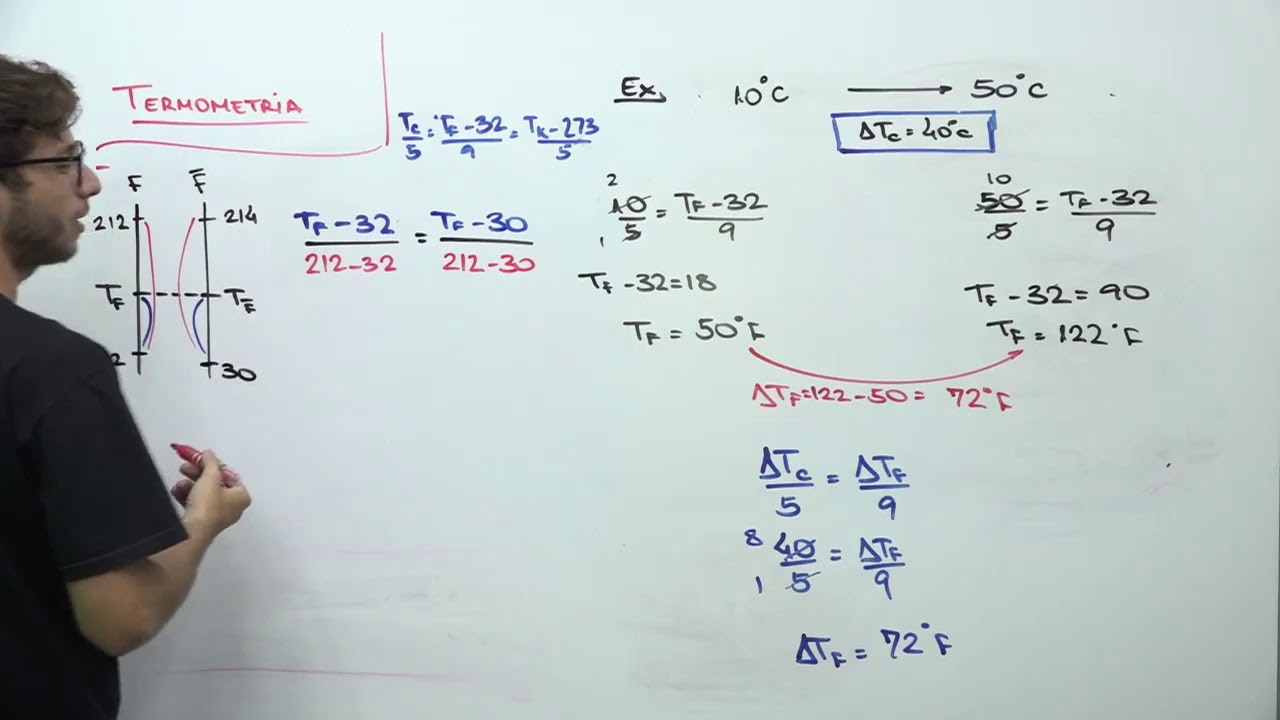 TERMOMETRIA
Tc/5 = TF-32/9 = TK-273/5
F F̅
212 214
TF TF̅
2 30
TF-32/212-32 = TF-30/212-30
Ex. 10°C → 50°C
ΔTc=40°C
2
10/5 = TF-32/9
1
TF-32=18
TF = 50°F
10
50/5 = TF-32/9
TF-32=90
TF = 122°F
ΔTF=122-50= 72°F
ΔTc/5 = ΔTF/9
8
40/5 = ΔTF/9
1
ΔTF = 72°F